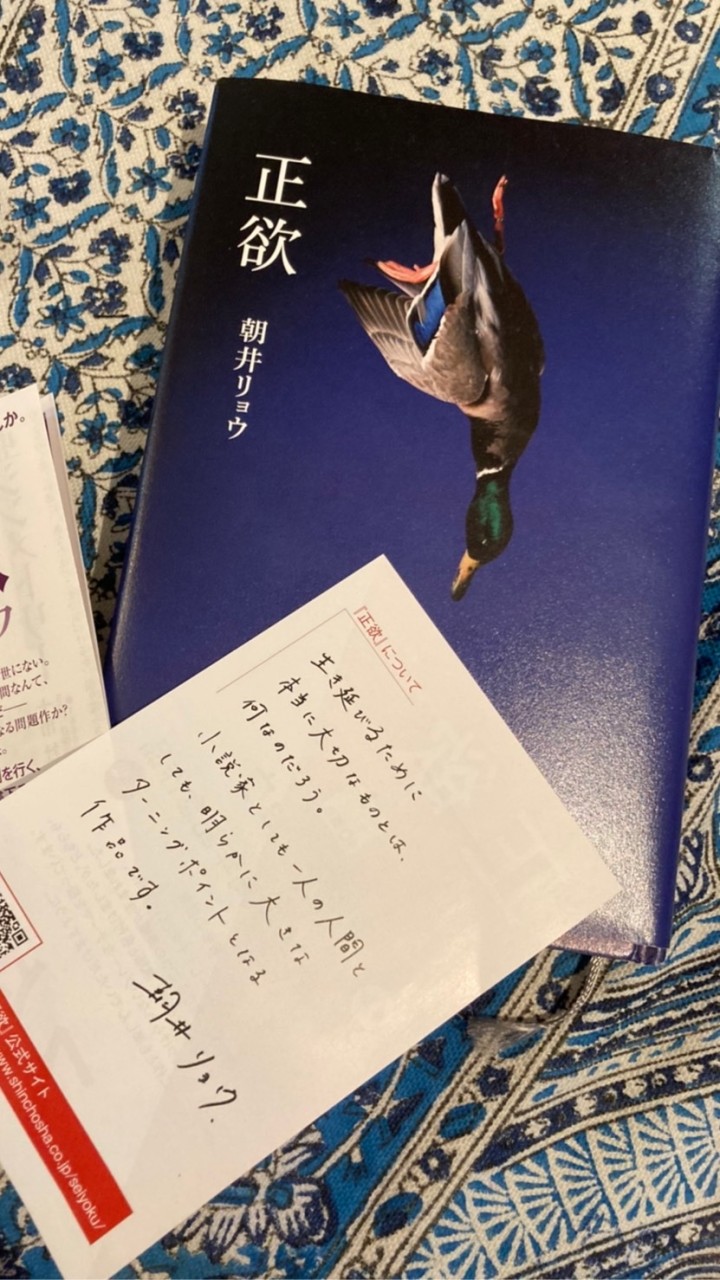 正欲
朝井リョウ
『正欲』について
生き延びるために
本当に大切なものとは、
何なのだろう。
小説家としても一人の人間と
しても、明らかに大きな
ターニングポイントとなる
作品です。
朝井リョウ.
か。
世にない。
間なんて、
なる問題作か?
を行く、
欲』公式サイト
www.shinchosha.co.jp/seiyoku/